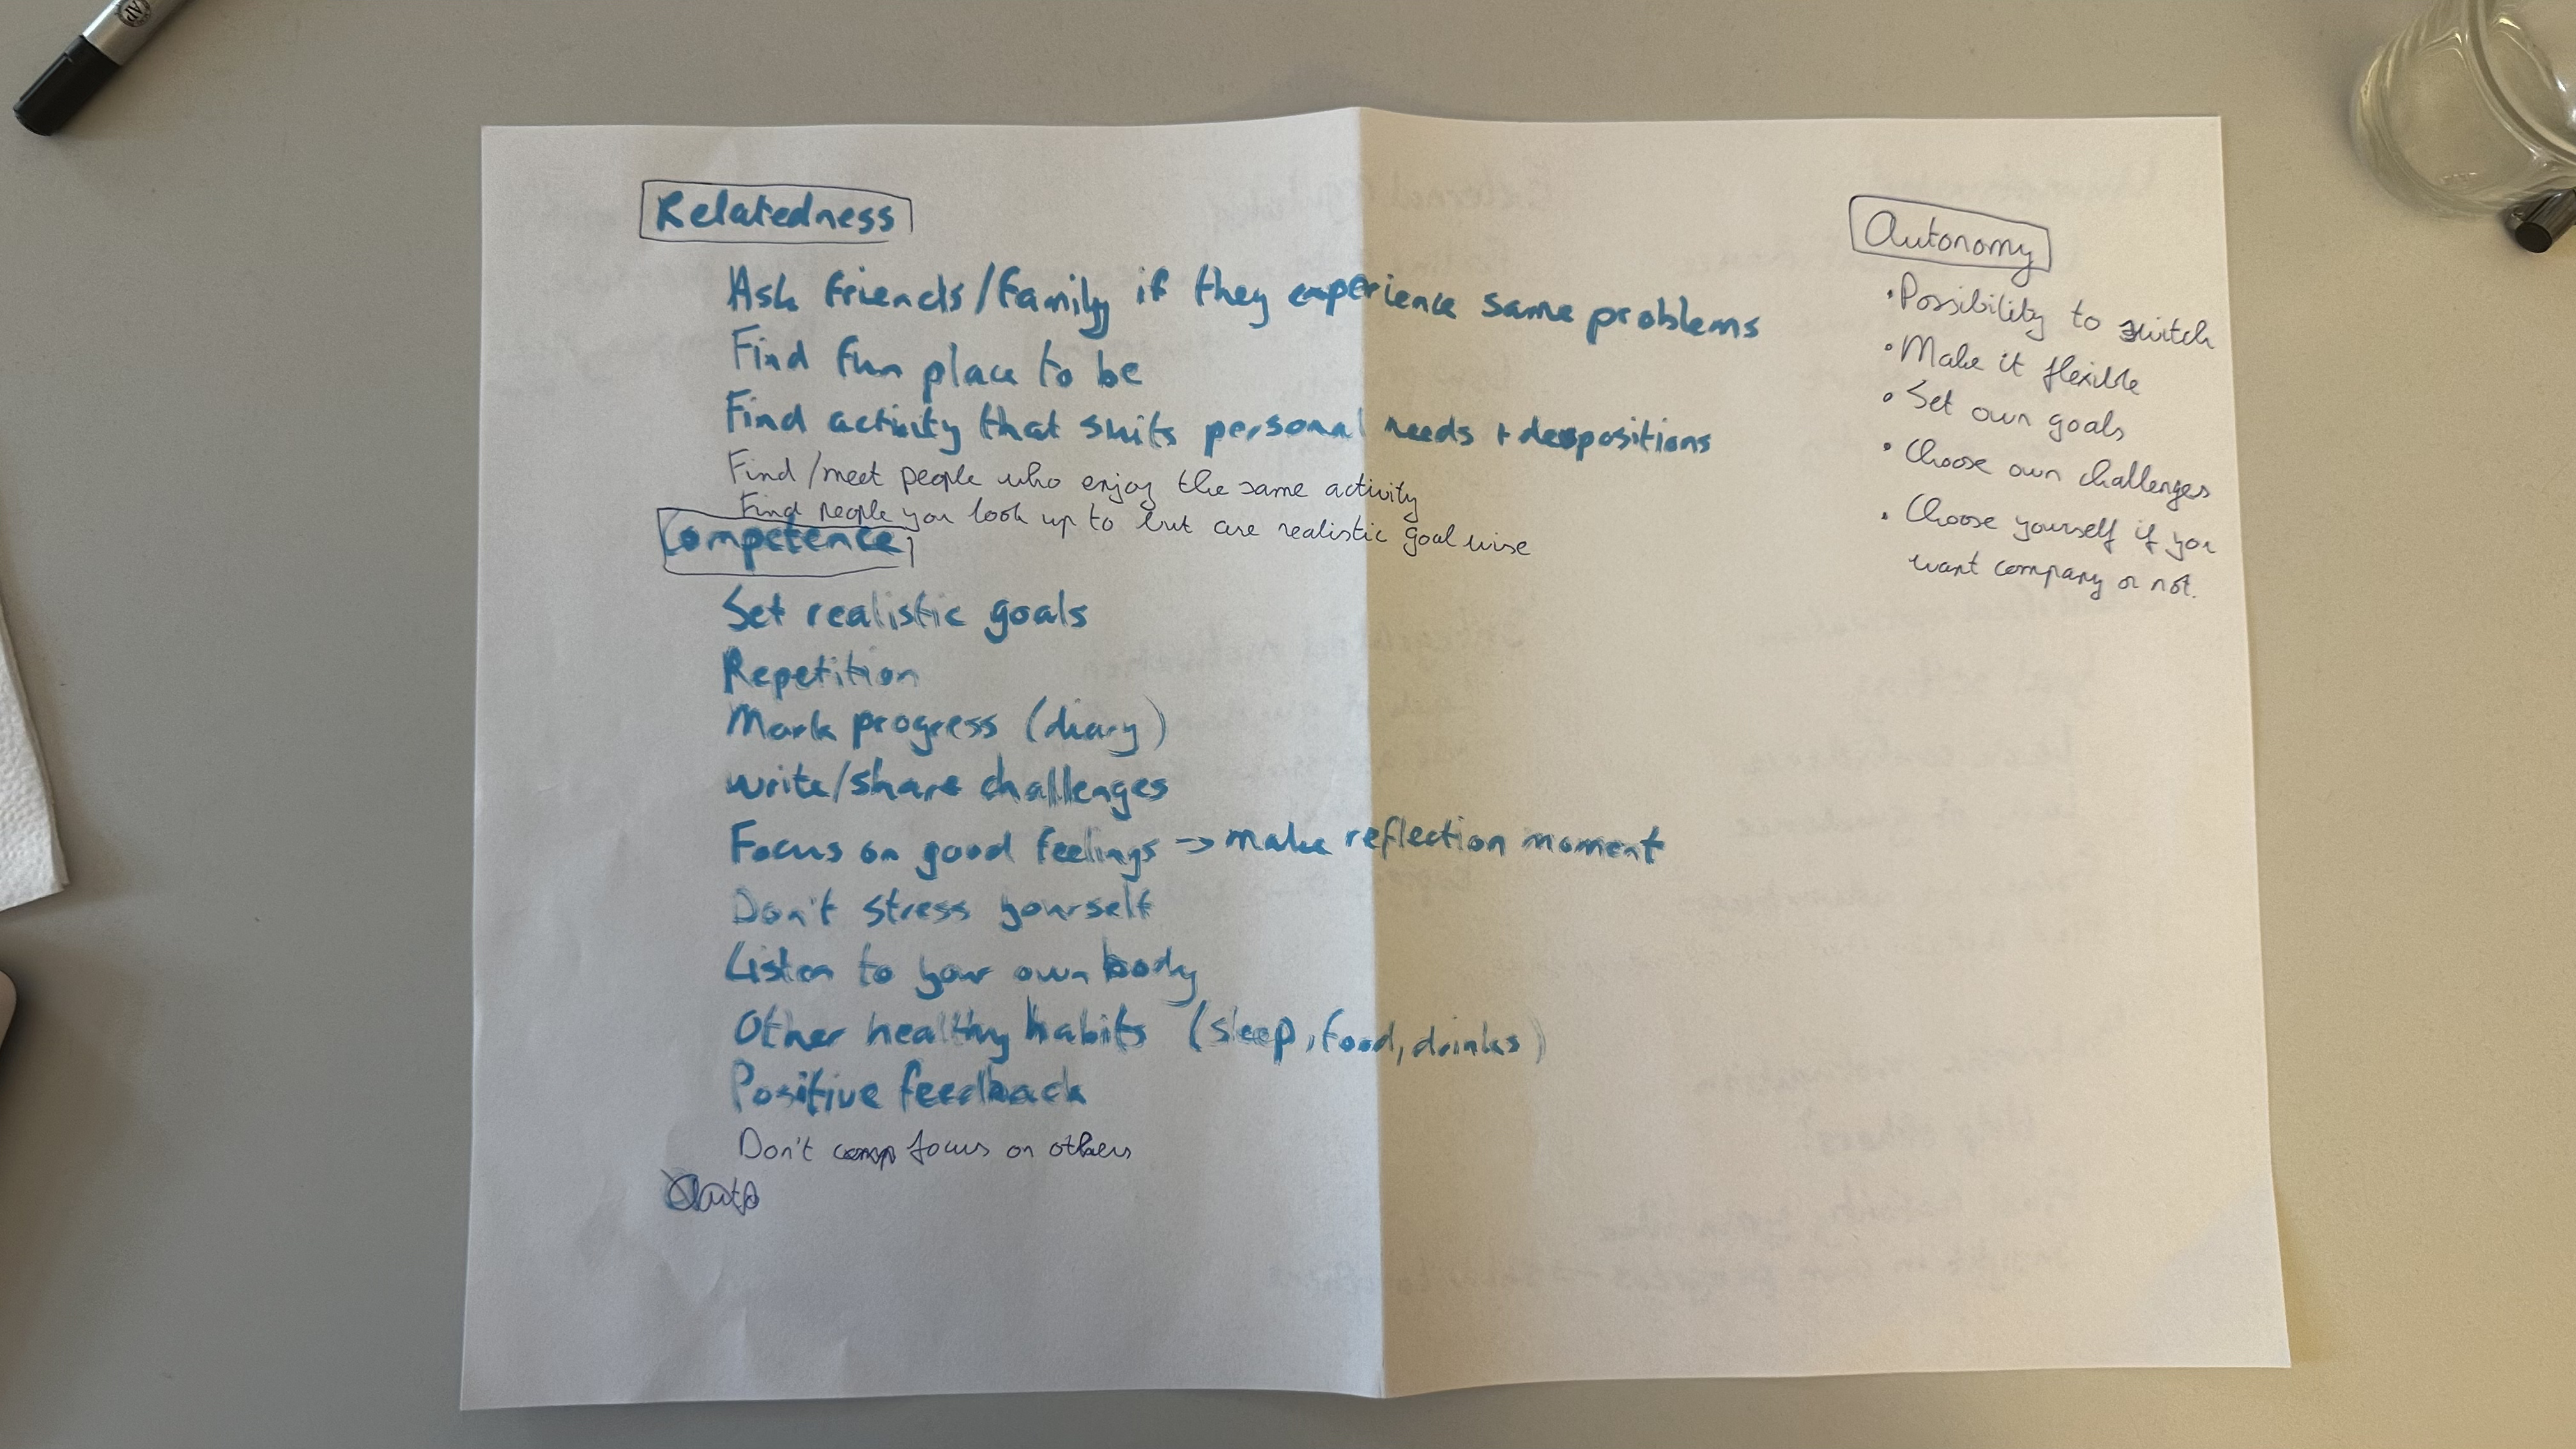 Relatedness
Ask friends/family if they experience same problems
Find fun place to be
Find activity that suits personal needs + despositions
Find/meet people who enjoy the same activity
Find people you look up to but are realistic goal wise
Competence
Set realistic goals
Repetition
Mark progress (diary)
write/share challenges
Focus on good feelings -> make reflection moment
Don't stress yourself
Listen to your own body
Other healthy habits (sleep, food, drinks)
Positive feedback
Don't comp focus on others
Auto
Autonomy
• Possibility to switch
• Make it flexible
• Set own goals
• Choose own challenges
• Choose yourself if you
want company or not.